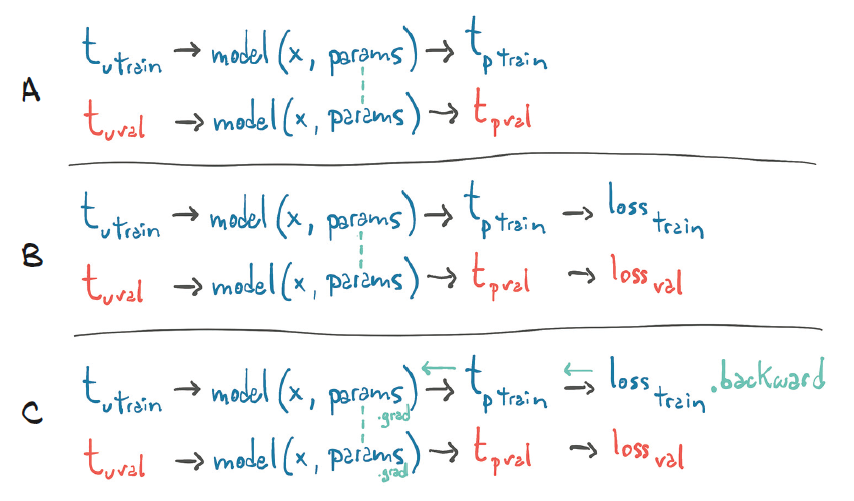 A
t_u train → model(x, params) → t_p train
t_u val → model(x, params) → t_p val
B
t_u train → model(x, params) → t_p train → loss train
t_u val → model(x, params) → t_p val → loss val
C
t_u train → model(x, params) ← → t_p train ← → loss train .backward
.grad
t_u val → model(x, params) → t_p val → loss val
.grad